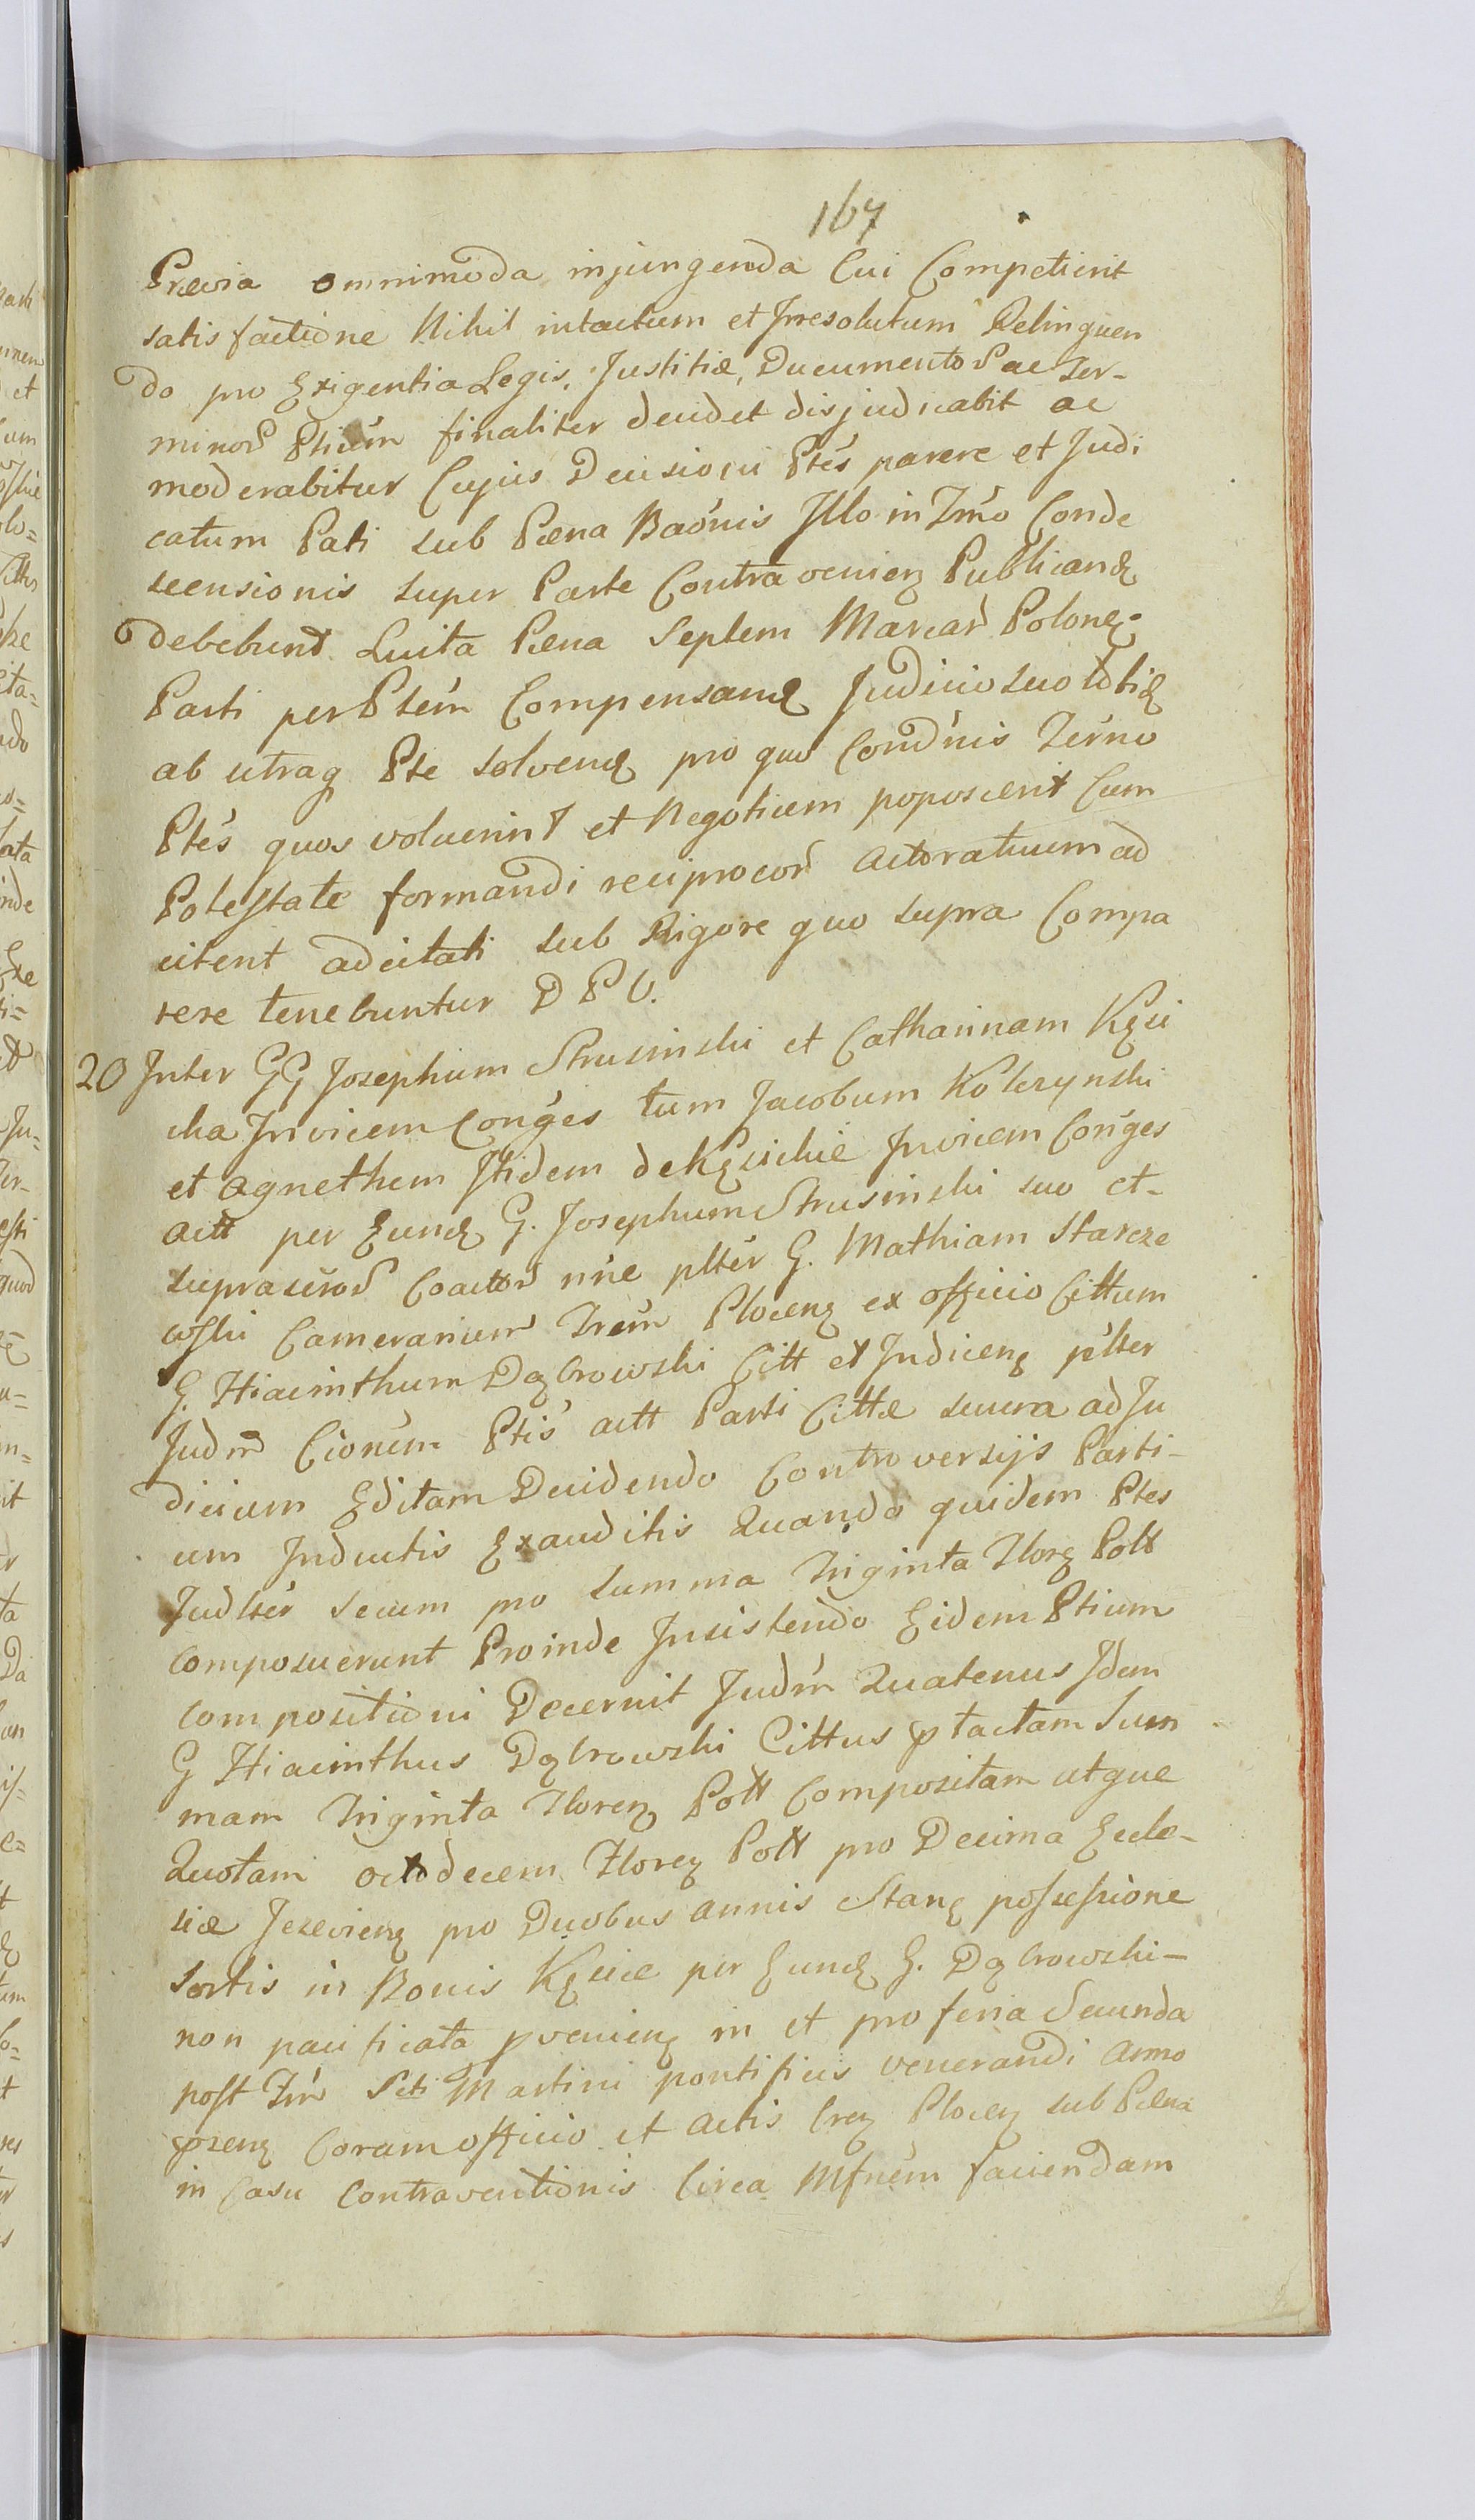 167
Prævia omnimoda injungenda Cui Competierit
satisfactione Nihil intactum et Irresolutum Relinquen
do pro Exigentia Legis, Justitiæ, Documentor ac Ter-
minor Ptium finaliter decidet disjudicabit ac
moderabitur Cujus Decisioni Ptes parere et Judi
catum Pati sub Pæna Baonis Illo in Trno Conde
scensionis super Parte Contravenien Publicand
debebunt Luita Pæna Septem Marcar Polon
Parti per Ptem Compensand Judicio suo toti
ab utraq Pte solvend pro quo Condnis Termo
Ptes quos voluerint et Negotium poposcerit Cum
Potestate formandi reciprocor Actoratuum ad
citent adcitati sub Rigore quo supra Compa
rere tenebuntur D P V.
20 Inter GG Josephum Strusinski et Catharinam Kęsi
cka Invicem Conges tum Jacobum Kolczynski
et Agnethem Itidem de Kęsickie Invicem Conges
Actt per Eund G. Josephum Strusinski suo et-
suprascror Coactor nne plter G. Mathiam Starcze
wski Camerarium Trem Plocen ex officio Cittum
G. Hiacinthum Dąbrowski Citt et Judicen plter
Judm Cionem Ptis actt Parti Cittæ severa ad Ju
dicium Editam Decidendo Controversijs Parti-
um Inductis Exauditis Quando quidem Ptes
Judlter secum pro summa Triginta Flor Poll
composuerunt Proinde Insistendo Eidem Ptium
compositioni Decernit Judm Quatenus Idem
G Hiacinthus Dąbrowski Cittus ptactam Sum
mam Triginta Floren Poll Compositam atque
Quotam octodecem Floren Poll pro Decima Eccle-
siæ Jezevien pro Duobus annis Stan possessione
Sortis in Bonis Kęsice per Eund G. Dąbrowski-
non pacificata pvenien in et pro feria Secunda
post Fm Scti Martini pontificis venerandi Anno
pzen Coram officio et Actis Cren Plocen sub Pæna
in Casu Contraventionis Circa Mfnem faciendam